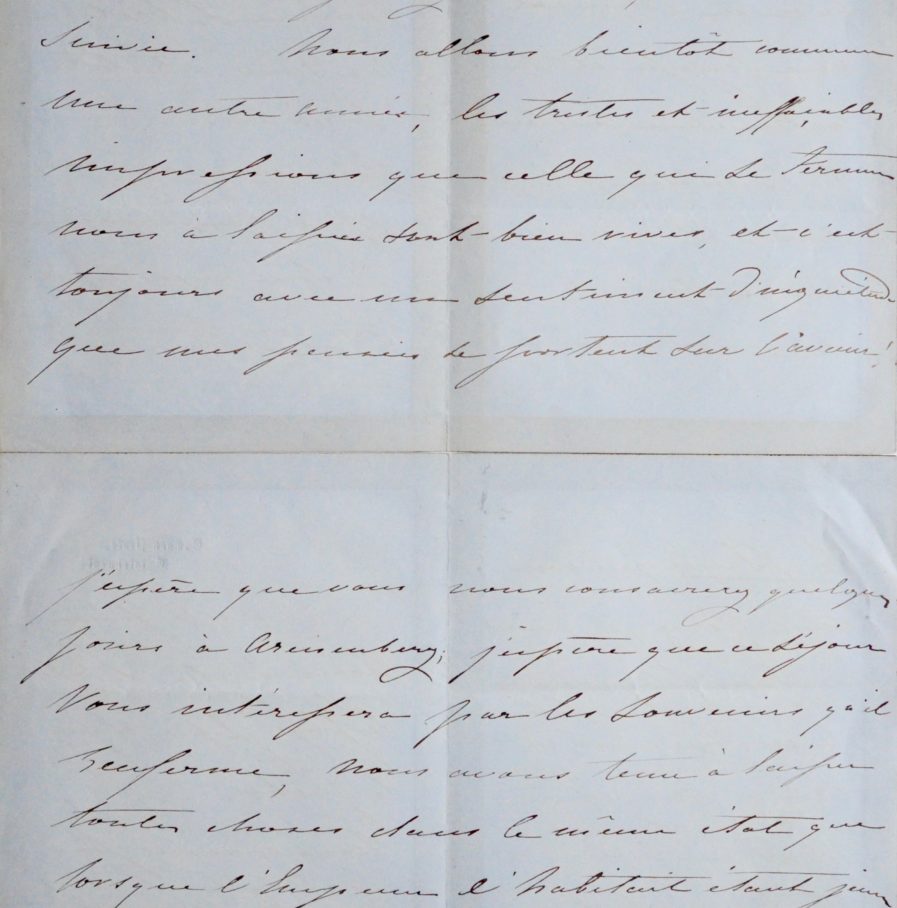 suivie. Nous allons bientôt commencer
une autre année, les tristes et ineffaçables
impressions que celle qui se termine
nous a laissées sont bien vives, et c'est
toujours avec un sentiment d'inquiétude
que mes pensées se portent sur l'avenir!
j'espère que vous nous consacrerez quelques
jours à Arenenberg; j'espère que ce séjour
vous intéressera par les souvenirs qu'il
renferme, nous avons tenu à laisser
toutes choses dans le même état que
lorsque l'Empereur l'habitait étant jeune